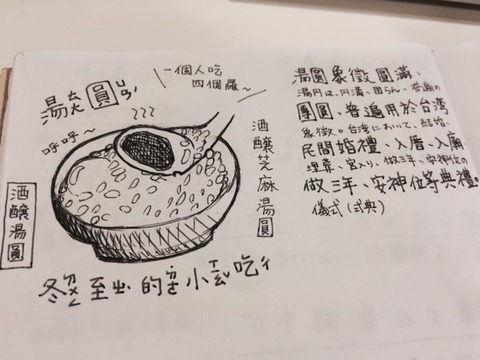 湯ㄊㄤ圓ㄩㄢˊ
一個人吃
四個羅~
呼呼~
酒釀芝麻湯圓
酒釀湯圓
冬至出的小吃
湯圓象徵圓滿、
団らん、普遍の
團圓、普遍用於台灣
象徵。台湾において、結婚、
民間婚禮、入厝、入廟
做三年、安神位の
做三年、安神位等典禮。
儀式(式典)